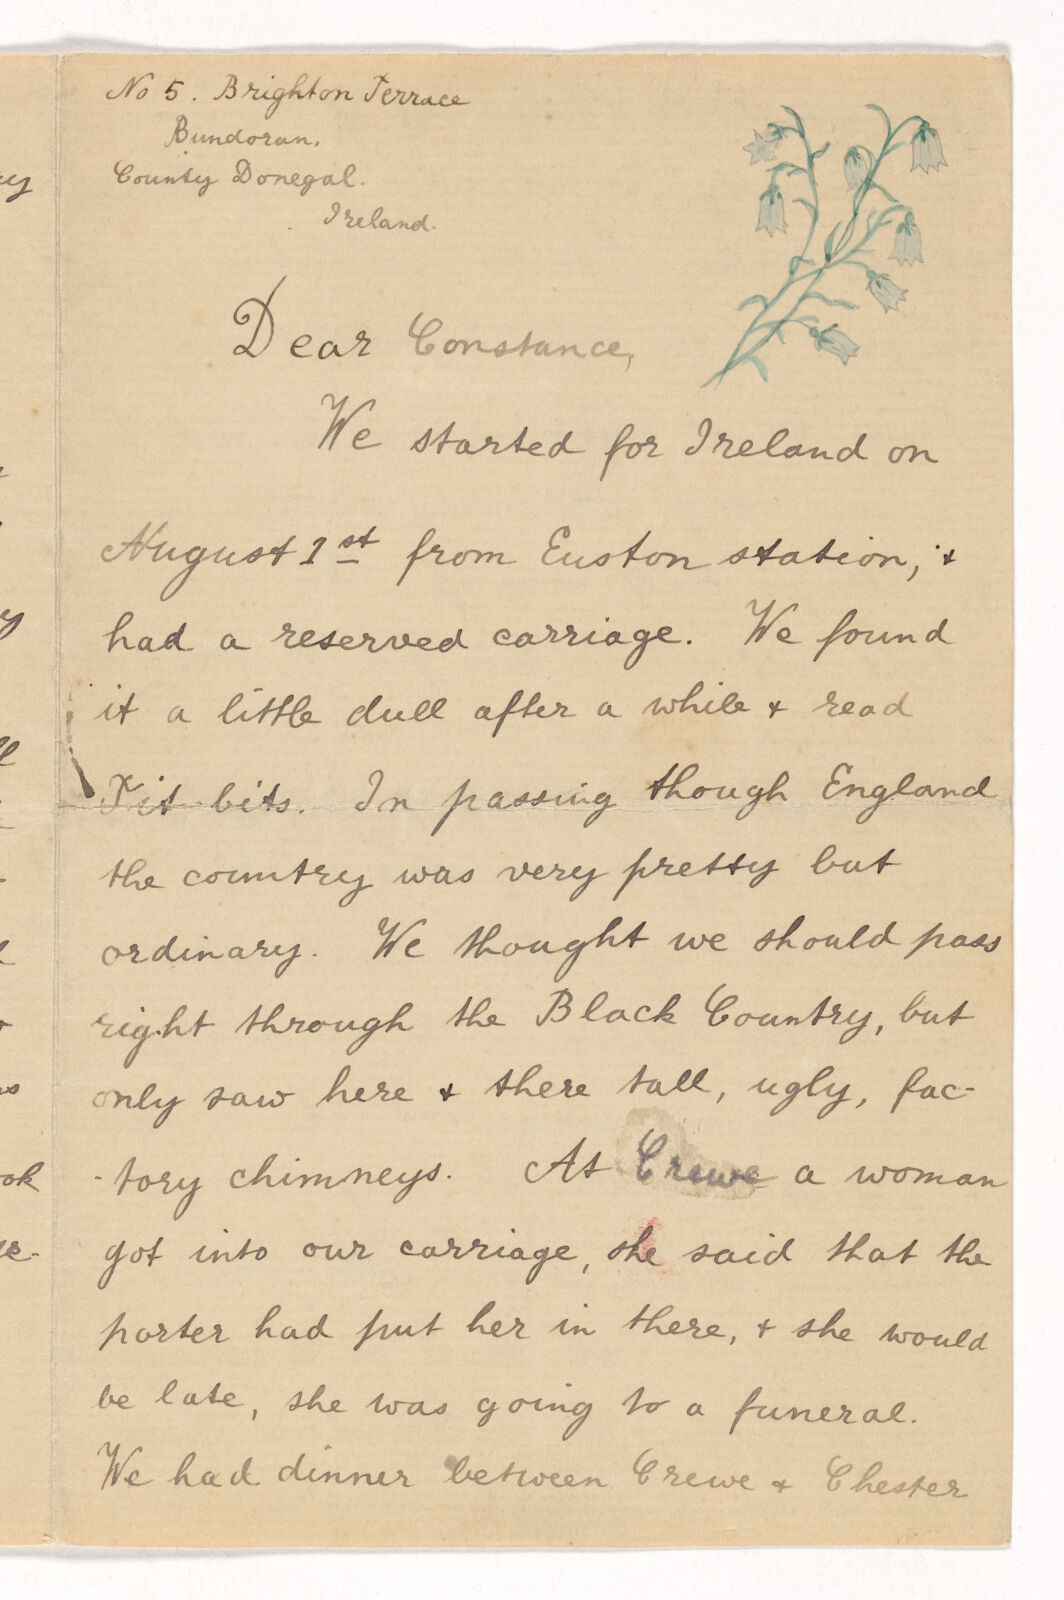 No 5. Brighton Terrace
Bundoran.
County Donegal.
Ireland.
Dear Constance,
We started for Ireland on
August 1st from Euston station, &
had a reserved carriage. We found
it a little dull after a while & read
Tit bits. In passing though England
the country was very pretty but
ordinary. We thought we should pass
right through the Black Country, but
only saw here & there tall, ugly, fac-
-tory chimneys. At Crewe a woman
got into our carriage, she said that the
porter had put her in there, & she would
be late, she was going to a funeral.
We had dinner between Crewe & Chester